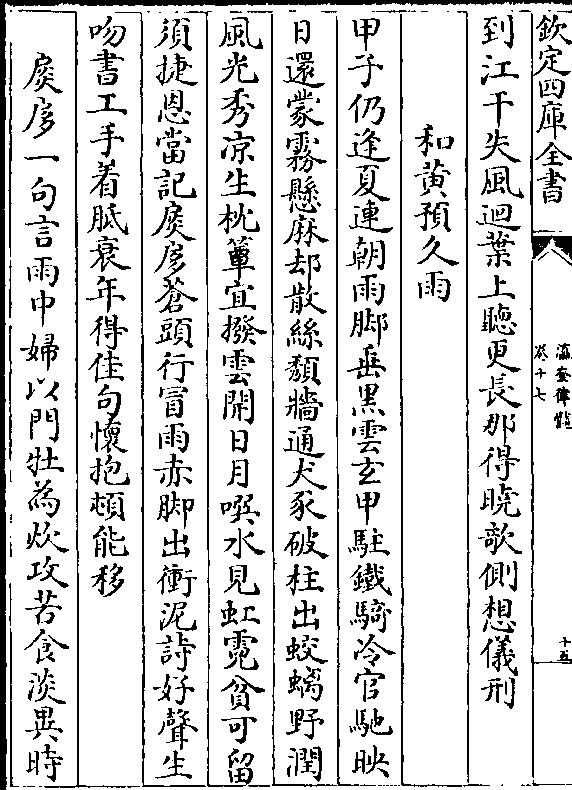 欽定四庫全書
瀛奎律髓
卷十七
十五
到江干失風迴葉上聽更長那得曉欹側想儀刑
和黃預久雨
甲子仍逢夏連朝雨脚垂黑雲玄甲駐鐵騎冷官馳映
日還蒙霧懸麻却散絲頽牆通犬豕破柱出蛟螭野潤
風光秀凉生枕簟宜撥雲開日月噀水見虹霓貧可留
須捷恩當記扊扅蒼頭行冒雨赤脚出衝泥詩好聲生
吻書工手着胝衰年得佳句懷抱頓能移
扊扅一句言雨中婦以門牡為炊攻苦食淡異時